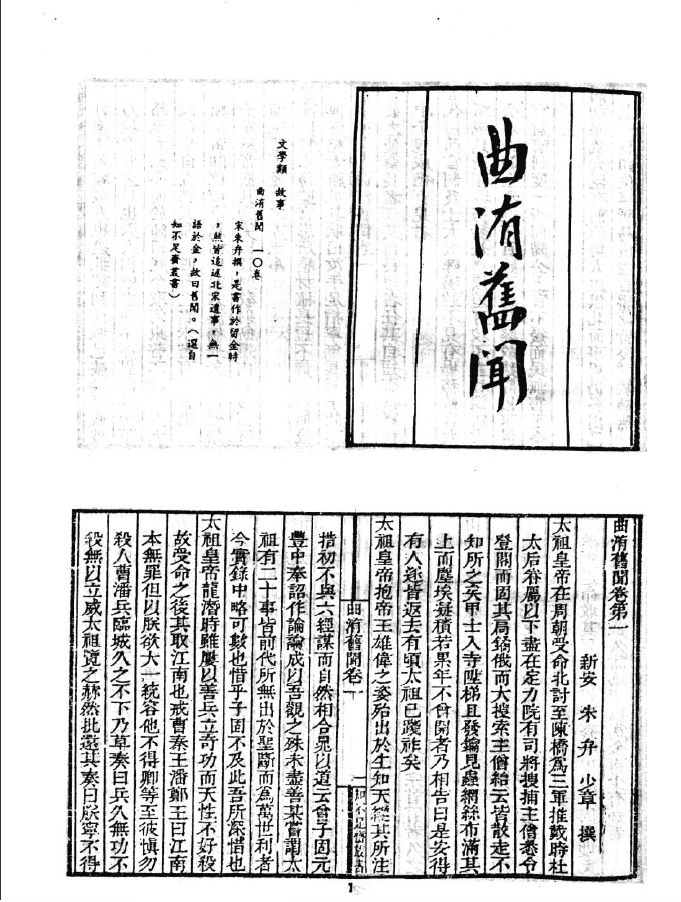 曲洧舊聞
文學類　故事
曲洧舊聞　一〇卷
宋朱弁撰，是書作於留金時
，然皆追述北宋遺事，無一
語於金，故曰舊聞。（選自
知不足齋叢書）
曲洧舊聞卷第一
新安　朱弁　少章　撰
太祖皇帝在周朝受命北討至陳橋爲三軍推戴時杜
太后眷屬以下盡在定力院有司將搜捕主僧悉令
登閣而固其扃鐍俄而大搜索主僧紿云皆散走不
知所之矣甲士入寺陞梯且發鑰見蟲網絲布滿其
上而塵埃凝積若累年不曾開者乃相告曰是安得
有人遂皆返去有頃太祖已踐祚矣
太祖皇帝抱帝王雄偉之姿殆出於生知天縱其所注
曲洧舊聞卷一
一
知不足齋叢書
措初不與六經謀而自然相合晁以道云曾子固元
豐中奉詔作論論成以吾觀之殊未盡善某嘗謂太
祖有二十事皆前代所無出於聖斷而爲萬世利者
今實錄中略可數也惜乎子固不及此吾所深惜也
太祖皇帝龍潛時雖屢以善兵立奇功而天性不好殺
故受命之後其取江南也戒曹秦王潘鄭王曰江南
本無罪但以朕欲大一統容他不得卿等至彼愼勿
殺人曹潘兵臨城久之不下乃草奏曰兵久無功不
殺無以立威太祖覽之赫然批還其奏曰朕寧不得
1